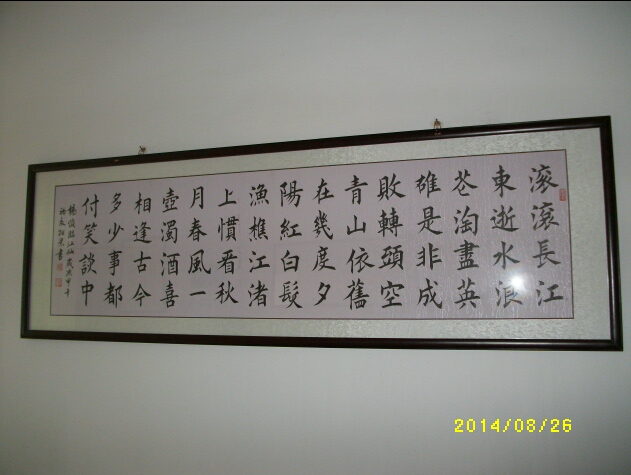 滚滚長江
東逝水浪
花淘盡英
雄是非成
敗轉頭空
青山依舊
在幾度夕
陽紅白髮
漁樵江渚
上慣看秋
月春風一
壺濁酒喜
相逢古今
多少事都
付笑談中
楊慎臨江仙歲次甲午
書
2014/08/26